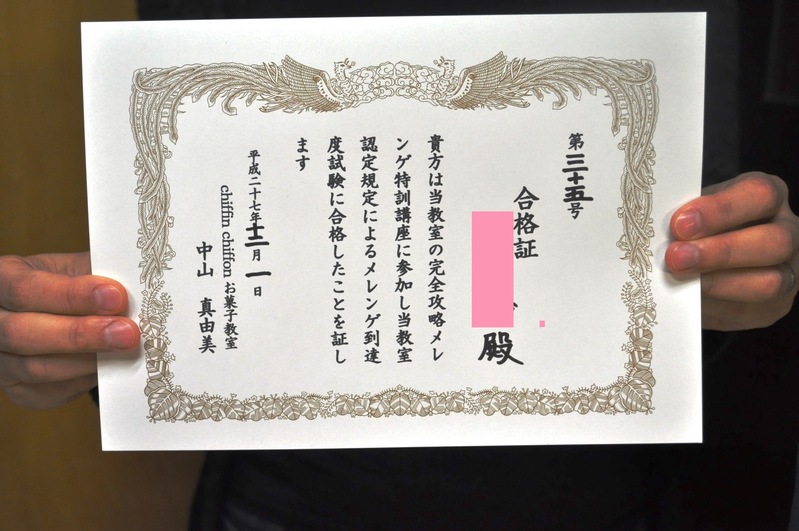 第三十五号
合格証
殿
貴方は当教室の完全攻略メレ
ンゲ特訓講座に参加し当教室
認定規定によるメレンゲ到達
度試験に合格したことを証し
ます
平成二十七年十二月一日
chiffin chiffon お菓子教室
中山 真由美